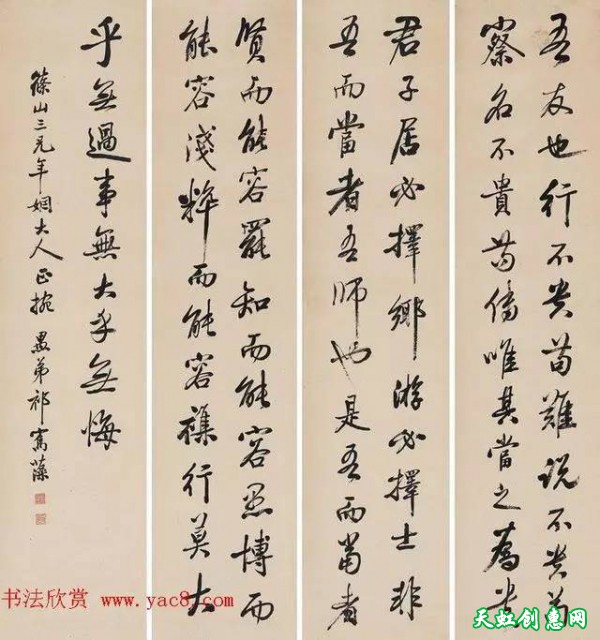 吾友也行不貴苟難説不貴苟
察名不貴苟傳唯其當之為貴
君子居必擇鄉游必擇士非
吾而當者吾師也是吾而當者
賢而能容罷知而能容愚博而
能容淺粹而能容雜行莫大
乎無過事無大乎無悔
篠山三兄年姻大人正捥 愚弟祁寯藻
书法欣赏 www.yac8.com
天虹创惠网